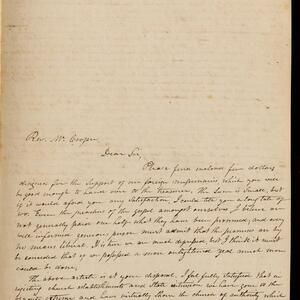 Rev. Mr. Cooper
Dear Sir,
Please find enclosed five dollars
designed for the support of our foreign missionaries which you will
be good enough to hand over to the Treasurer. The sum is small, but
if it would afford you any satisfaction I could tell you a long tale of
two. Even the preachers of the gospel amongst ourselves I believe are
not generally paid one half what they have been promised, and every
well informed generous person must admit that the promises are by
no means liberal. I know we are much dispersed, but I think it must
be conceded that if we possessed a more enlightened zeal much more
could be done.
The above article is at your disposal. I feel fully satisfied that in
rejecting church establishments and State we have gone to the
opposite extreme and have virtually the church of authority which